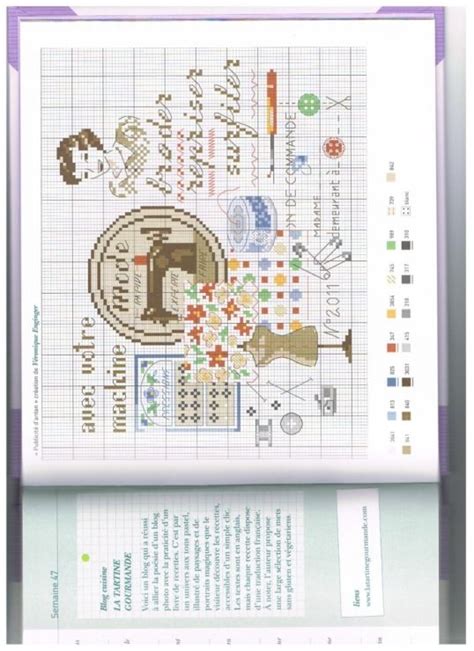 « Publicité d'antan » création de Véronique Enginger
avec votre
machine
Mode
broder
repriser
surfiler
PRESSIONS
N°2011
BON DE COMMANDE
MADAME
demeurant à
3841
813
825
347
3856
745
989
729
842
841
840
3031
415
318
317
310
blanc
Semaine 47
Blog cuisine
LA TARTINE
GOURMANDE
Voici un blog qui a réussi
à allier la poésie d'un blog
photo avec la praticité d'un
livre de recettes. C'est par
un univers aux tons pastel,
illustré de paysages et de
portraits magiques que le
visiteur découvre les recettes,
accessibles d'un simple clic.
Les textes sont en anglais,
mais chaque recette dispose
d'une traduction française.
À noter, l'auteur propose
une large sélection de mets
sans gluten et végétariens
liens
www.latartinegourmande.com